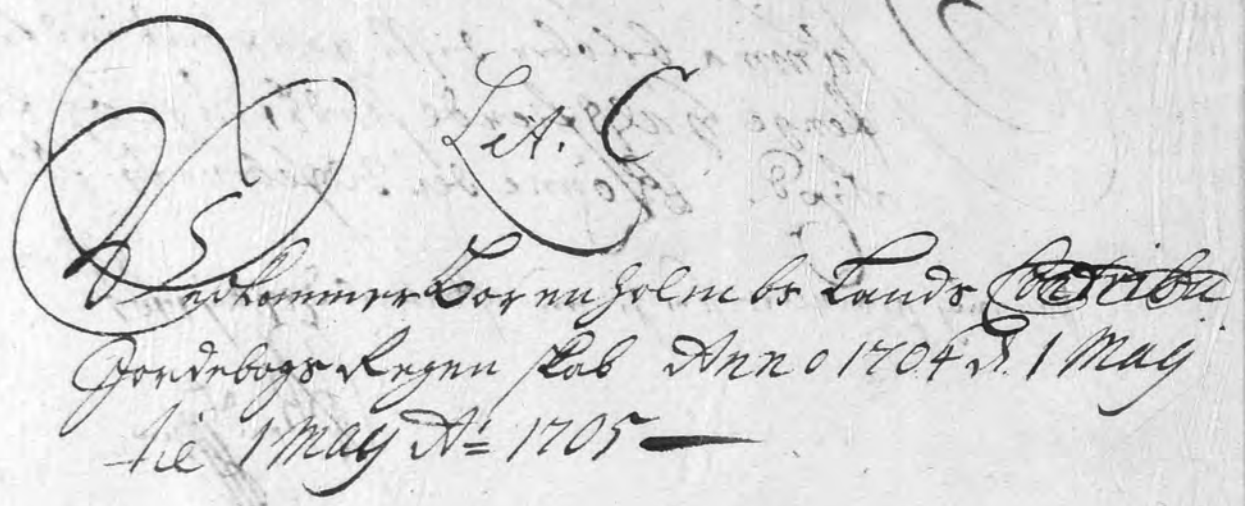 Lit. C
5
Vedkommer Borrenholmbs Lands Contribu
Jordebogs Regenskab Anno 1704 d. 1 May
tie 1 May Ao 1705